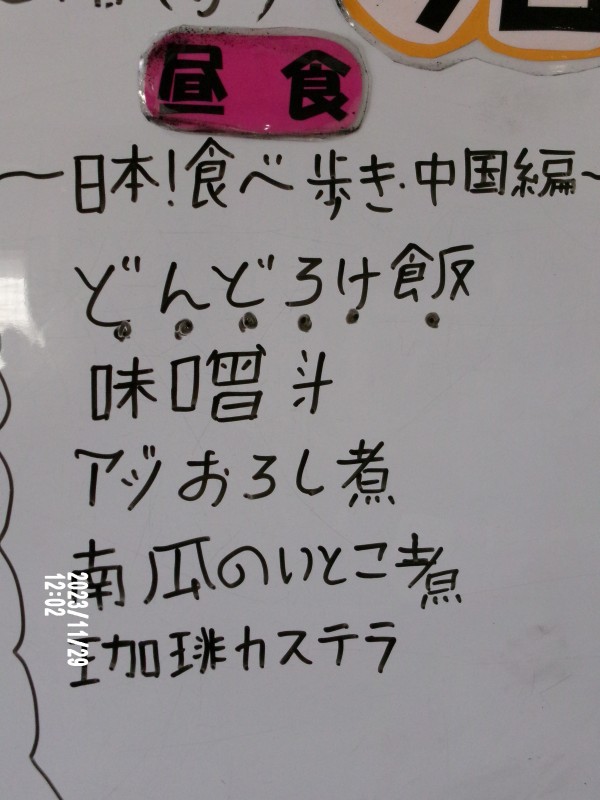 昼食
~日本!食べ歩き・中国編~
どんどろけ飯
味噌斗
アジおろし煮
南瓜のいとこ煮
珈琲カステラ
2023/11/29
12:02